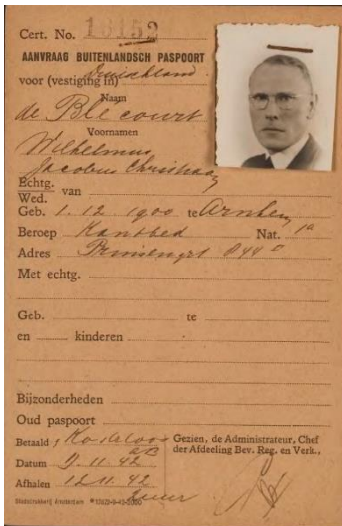 Cert. No. 10152
AANVRAAG BUITENLANDSCH PASPOORT
voor (vestiging in) Duitschland
Naam
de Blécourt
Voornamen
Wilhelmus
Jacobus Christiaan
Echtg. van
Wed.
Geb. 1. 12. 1900 te Arnhem
Beroep Kantbed Nat.
Adres Prinsengrt 844
Met echtg.
Geb. te
en kinderen
Bijzonderheden
Oud paspoort
Betaald, Kosteloos Gezien, de Administrateur, Chef
der Afdeeling Bev. Reg. en Verk.,
Datum 9.11.42
Afhalen 12.11.42
Stadsdrukkerij Amsterdam